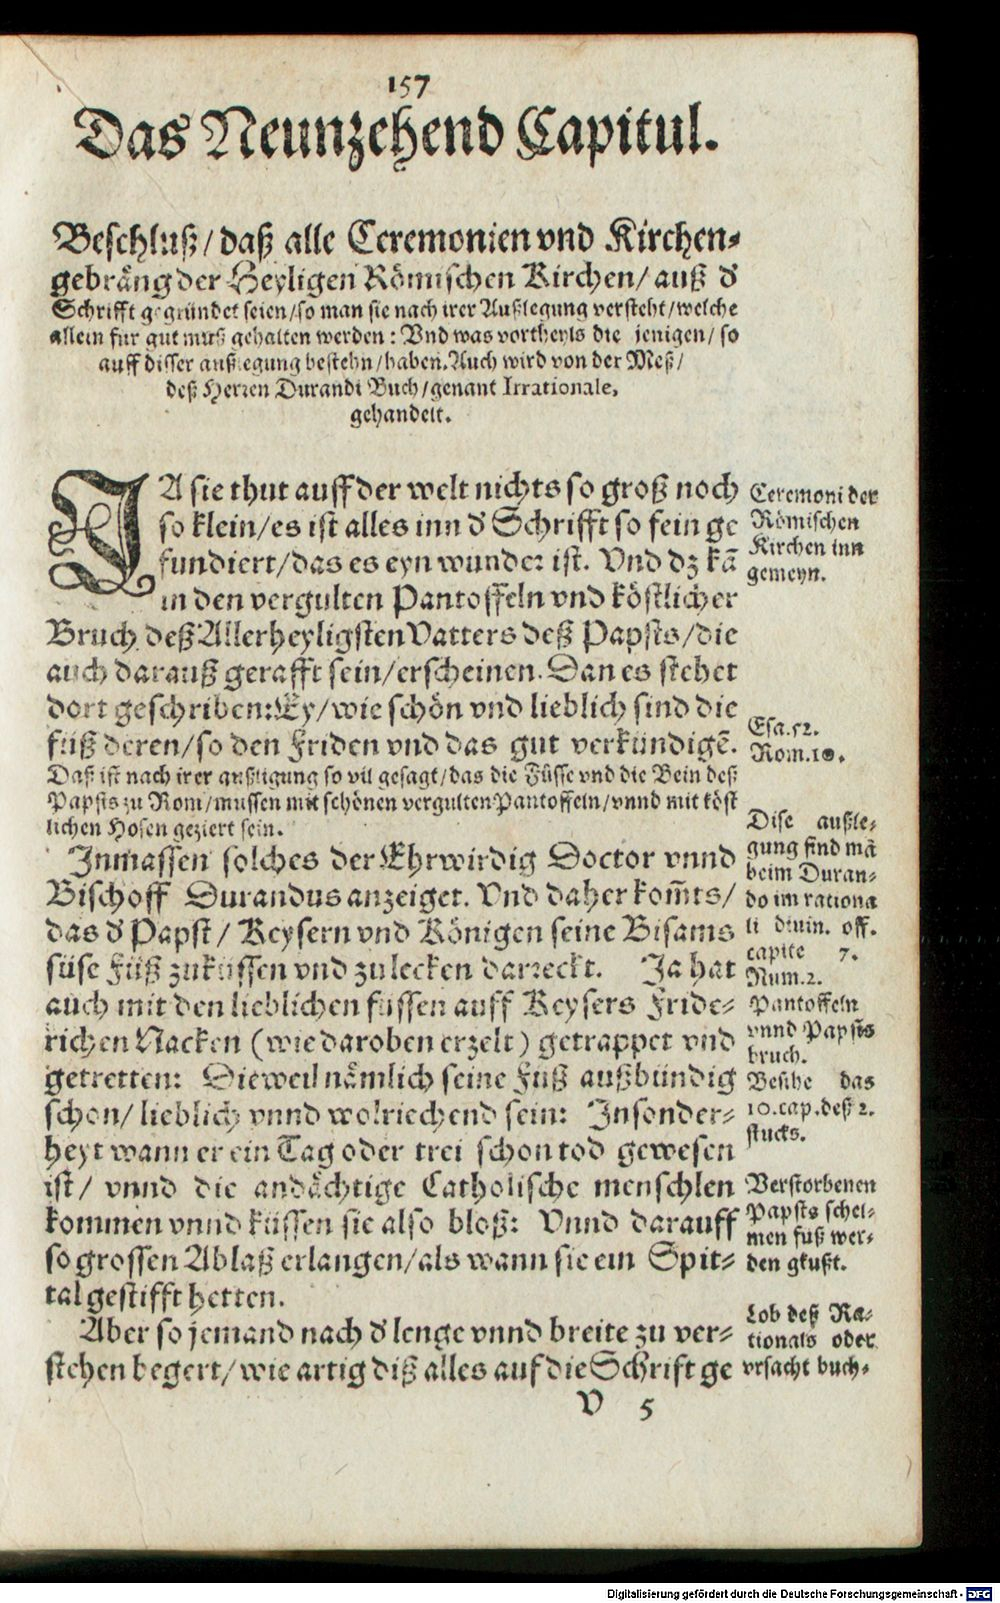 157
Das Neunzehend Capitul.
Beschluß/ daß alle Ceremonien vnd Kirchen-
gebräng der Heyligen Römischen Kirchen/ auß d'
Schrifft gegründet seien/so man sie nach irer Außlegung versteht/welche
allein für gut muß gehalten werden: Vnd was vortheyls die jenigen/ so
auff disser außlegung bestehn/haben. Auch wird von der Meß/
deß Herren Durandi Buch/genant Irrationale,
gehandelt.
JA sie thut auff der welt nichts so groß noch
so klein/es ist alles inn d' Schrifft so fein ge
fundiert/das es eyn wunder ist. Vnd dz kā
in den vergulten Pantoffeln vnd köstlicher
Bruch deß Allerheyligsten Vatters deß Papsts/die
auch darauß gerafft sein/erscheinen. Dan es stehet
dort geschriben: Ey/wie schön vnd lieblich sind die
füß deren/so den Friden vnd das gut verkündigē.
Daß ist nach irer außligung so vil gesagt/das die Füsse vnd die Bein deß
Papsts zu Rom/mussen mit schönen vergulten Pantoffeln/vnnd mit köst
lichen Hosen geziert sein.
Inmassen solches der Ehrwirdig Doctor vnnd
Bischoff Durandus anzeiget. Vnd daher kom̄ts/
das d' Papst/ Keysern vnd Königen seine Bisams
süse Füß zuküssen vnd zulecken darreckt. Ja hat
auch mit den lieblichen füssen auff Keysers Fride-
richen Nacken (wie daroben erzelt) getrappet vnd
getretten: Dieweil nämlich seine Füß außbündig
schon/ lieblich vnnd wolriechend sein: Insonder-
heyt wann er ein Tag oder trei schon tod gewesen
ist/ vnnd die andächtige Catholische menschlen
kommen vnnd küssen sie also bloß: Vnnd darauff
so grossen Ablaß erlangen/als wann sie ein Spit-
tal gestifft hetten.
Aber so jemand nach d' lenge vnnd breite zu ver-
stehen begert/ wie artig diß alles auf die Schrift ge
V 5
Ceremoni der
Römischen
Kirchen inn
gemeyn.
Esa.52.
Rom.10.
Dise außle-
gung find mā
beim Duran-
do im rationa
li diuin. off.
capite 7.
Num.2.
Pantoffeln
vnnd Papsts
bruch.
Besihe das
10.cap.deß 2.
stucks.
Verstorbenen
Papsts schel-
men füß wer-
den gkußt.
Lob deß Ra-
tionals oder
vrsacht buch-
Digitalisierung gefördert durch die Deutsche Forschungsgemeinschaft - DFG